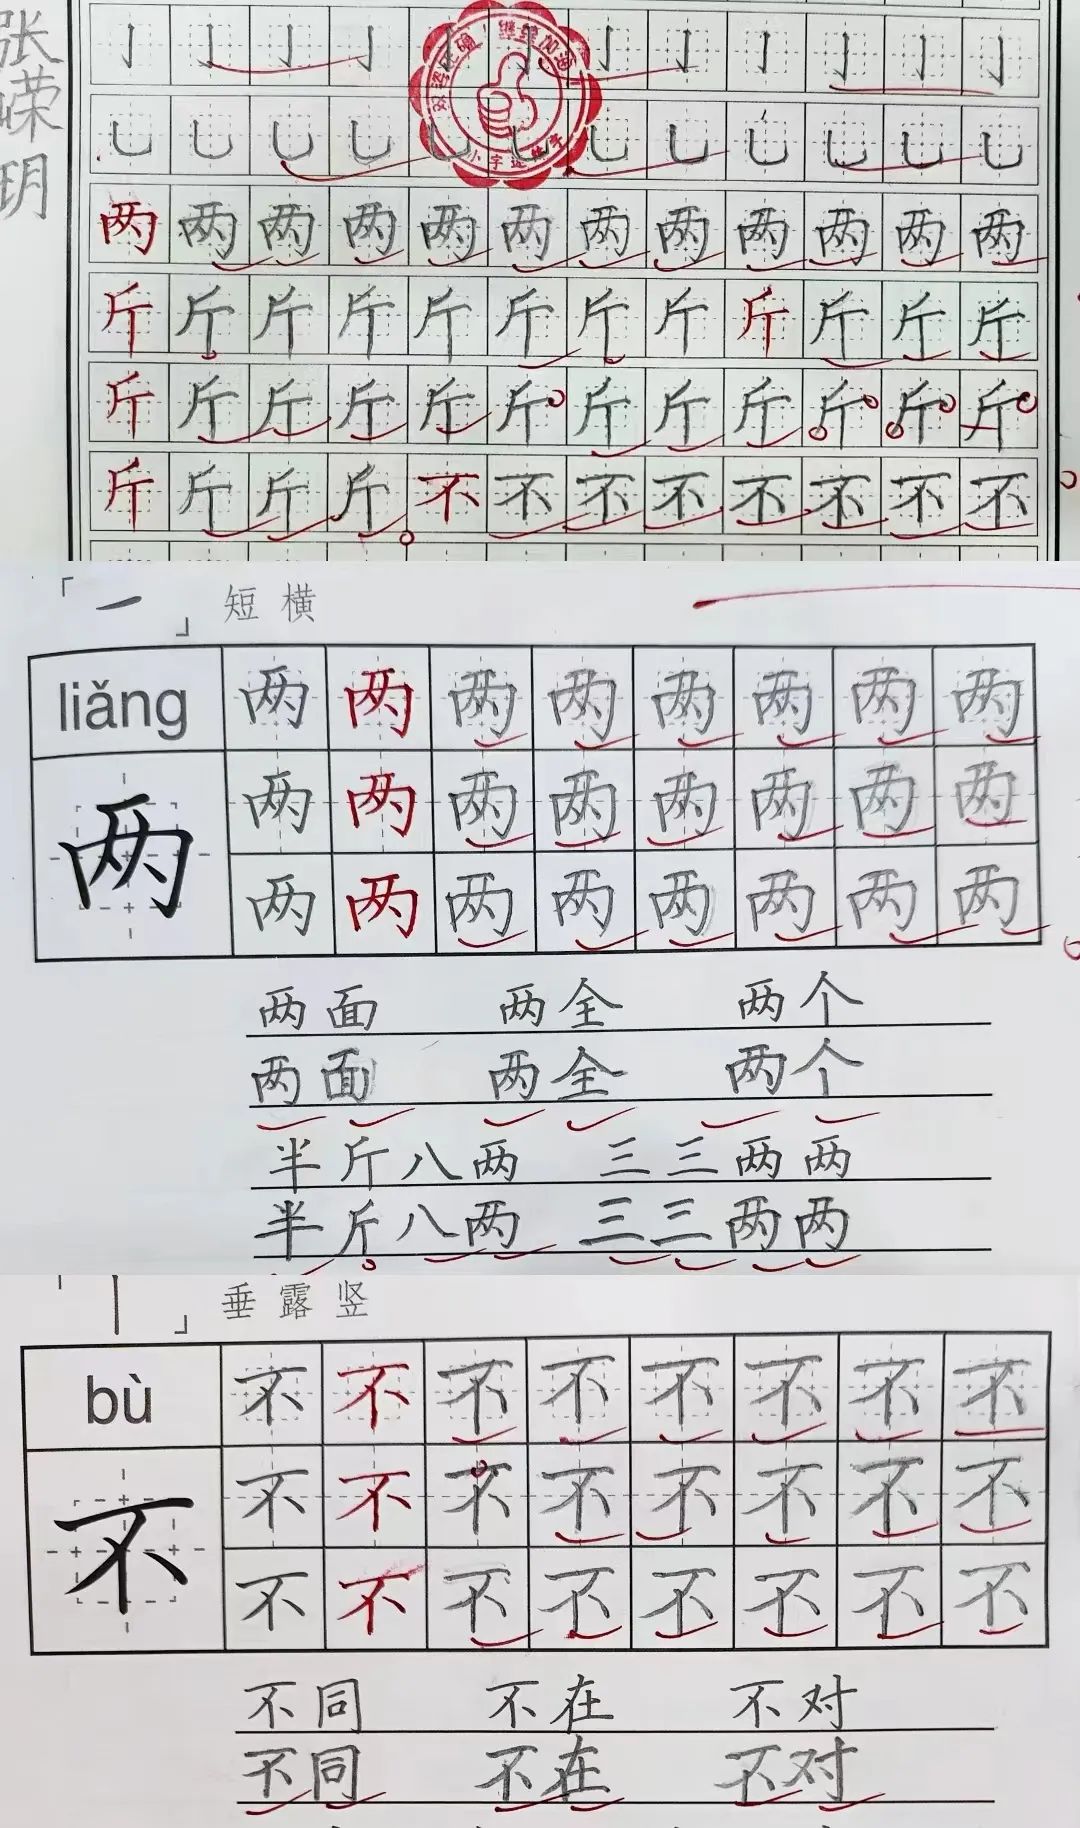 张嵘玥
继续加油
小字
两两两两两两两两两两两两
斤斤斤斤斤斤斤斤斤斤斤斤
斤斤斤斤斤斤斤斤斤斤斤斤
斤斤斤斤不不不不不不不不
「一」 短横
liǎng 两两两两两两两两
两 两两两两两两两两
两两两两两两两两
两面 两全 两个
两面 两全 两个
半斤八两 三三两两
半斤八两 三三两两
「丨」 垂露竖
bù 不不不不不不不不
不 不不不不不不不不
不不不不不不不不
不同 不在 不对
不同 不在 不对